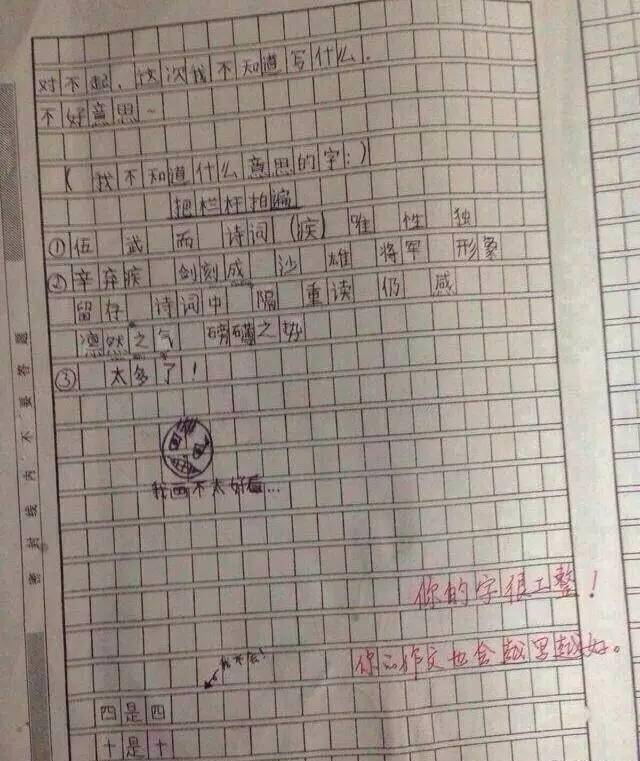 对不起，这次我不知道写什么.
不好意思~
(我不知道什么意思的字:)
把栏杆拍遍
① 伍 武 而 诗词 (疾) 唯 性 独
② 辛弃疾 剑刻成 沙 雄 将军 形象
留存 诗词中 隔 重读 仍 感
凛然之气 磅礴之势
③ 太多了!
我画不太好看...
你的字很工整!
你的作文也会越写越好。
我不会!
四是四
十是十
密封线内不要答题